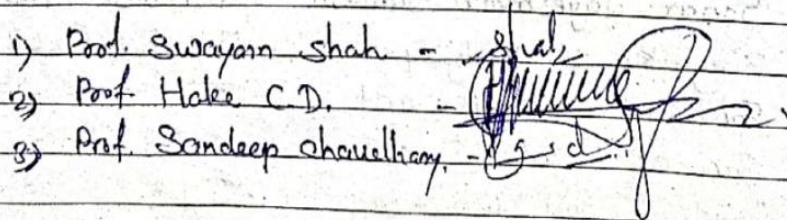 1) Prof. Swayam Shah -
2) Prof Hake C.D. -
3) Prof. Sandeep Chaudhary. -